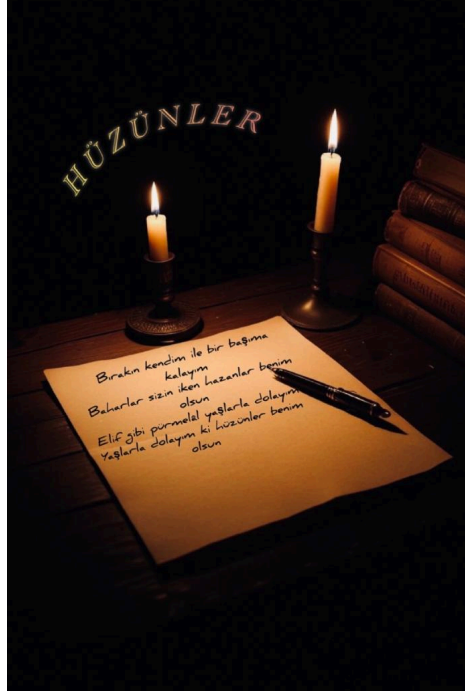 HÜZÜNLER
Bırakın kendim ile bir başıma
kalayım
Baharlar sizin iken hazanlar benim
olsun
Elif gibi pürmelal yaşlarla dolayım
Yaşlarla dolayım ki hüzünler benim
olsun